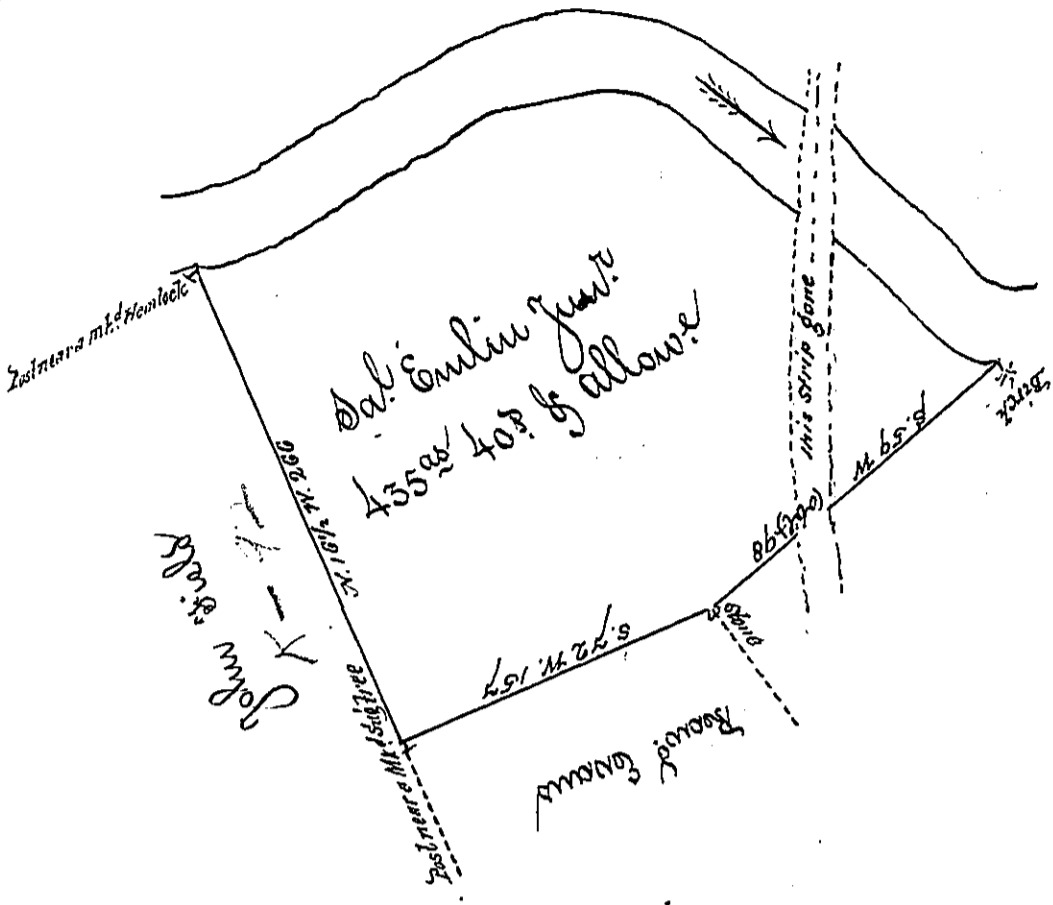 Post near a mkd. Hemlock
Sal. Emlin Junr.
435as 40ps. & allowe
this strip gone
Birch
S. 59 W
98
N. 16 1/2 W. 266
John Field
S. 72 W. 157
Post near a Mkd. Sug Tree
Evans